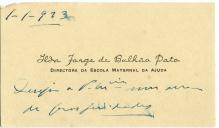 1-1-933
Ilda Jorge de Bulhão Pato
DIRECTORA DA ESCOLA MATERNAL DA AJUDA
de prosperidades